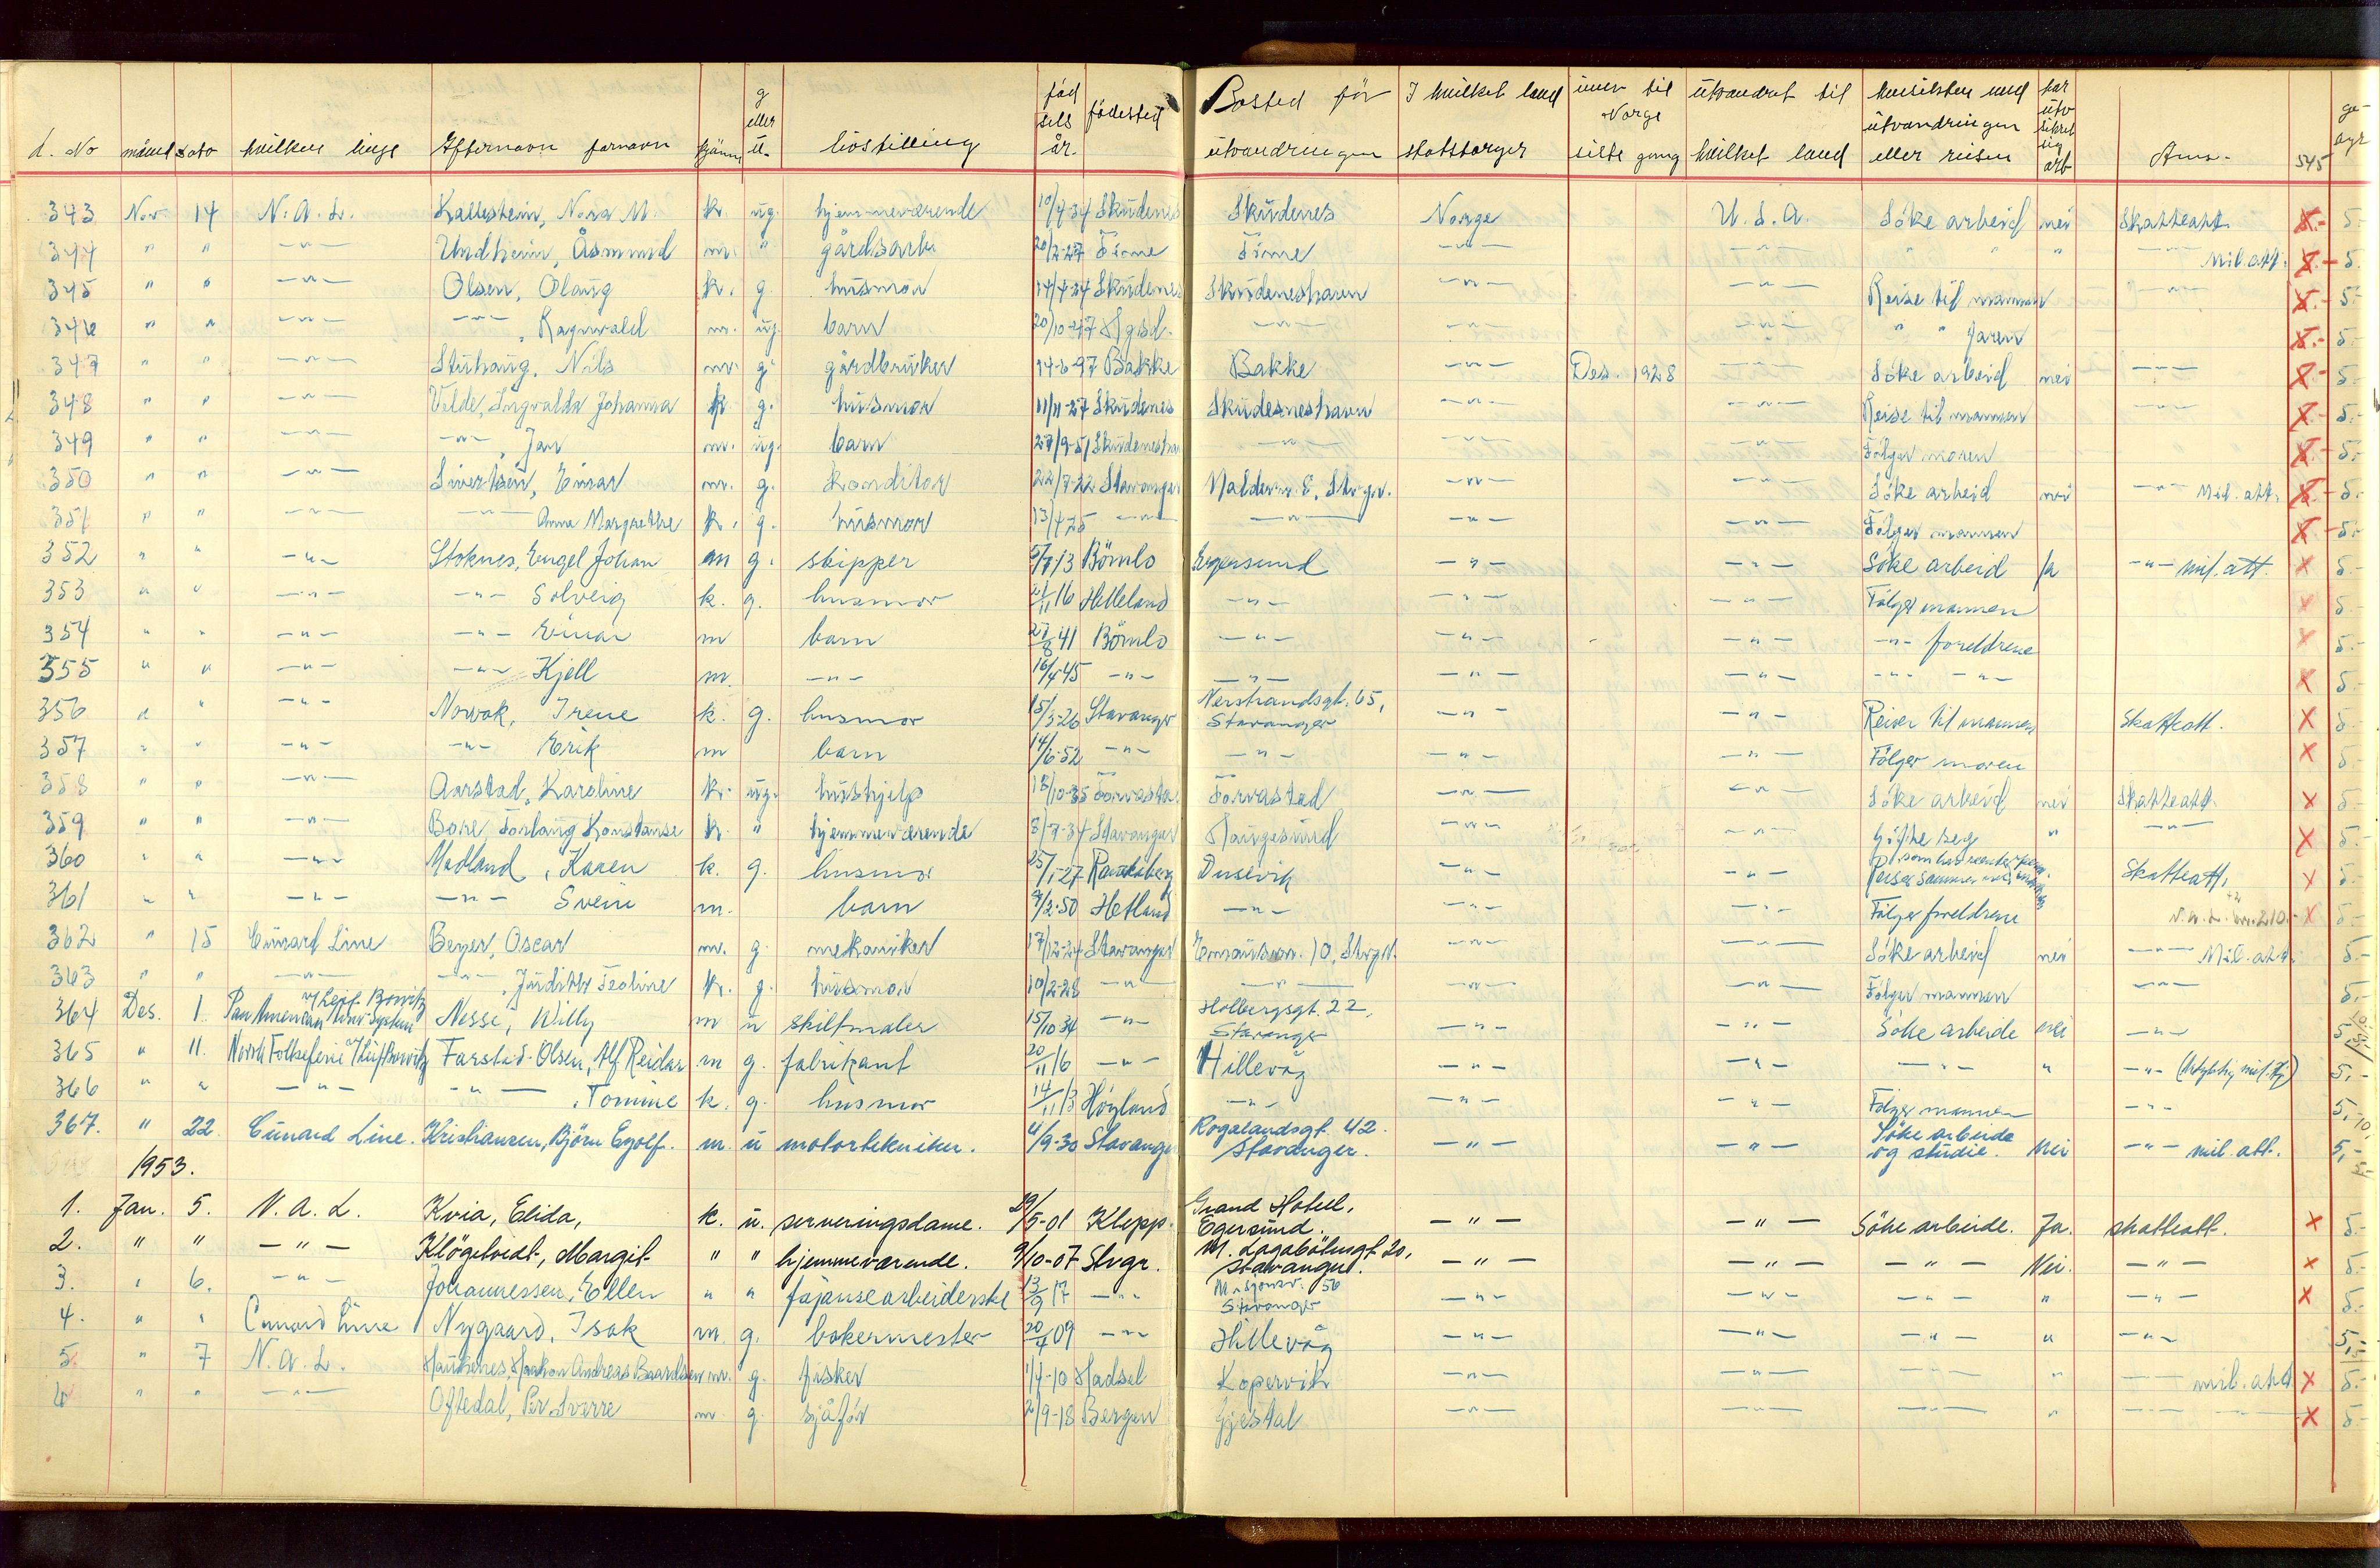 L. No måned dato hvilken linje Efternavn fornavn kjönn g eller u. livsstilling föd sels år. födested Bosted för utvandringen I hvilket land statsborger innv til Norge siste gang utvandret til hvilket land hensikten med utvandringen eller reisen har utv sikret sig arb Anm. 545
343 Nov 14 N.A.L. Kallestein, Nora M. k. ug. hjemmeværende 10/4-34 Skudenes Skudenes Norge U.S.A. Söke arbeid nei Skatteatt. X.- 5.-
344 " " -"- Undheim, Åsmund m. " gårdsarb. 20/2-27 Time Time -"- -"- " " " -"- Mil.att. X.- 5.-
345 " " -"- Olsen, Olaug k. g. husmor 14/4-24 Skudenes Skudeneshavn -"- -"- Reise til mannen -"- X.- 5.-
346 " " -"- -"-, Ragnvald m. ug. barn 20/10-47 Hgsd. -"- -"- -"- " " faren X.- 5.-
347 " " -"- Stuhaug, Nils m. g. gårdbruker 14-6-97 Bakke Bakke -"- Des. 1928 -"- Söke arbeid nei -"- X.- 5.-
348 " " -"- Velde, Ingvalda Johanna k. g. husmor 11/11-27 Skudenes Skudesneshavn -"- -"- Reise til mannen -"- X.- 5.-
349 " " -"- -"-, Jan m. ug. barn 27/9-51 Skudenesha -"- -"- -"- Fölger moren X.- 5.-
350 " " -"- Sivertsen, Einar m. g. Konditor 22/7-22 Stavanger 8, Stvgr. -"- -"- Söke arbeid nei -"- Mil. att. X.- 5.-
351 " " -"- -"- Anna Margrethe k. g. husmor 13/4-25 -"- -"- -"- -"- Fölger mannen X.- 5.-
352 " " -"- Stoknes, Engel Johan m g. skipper 5/7 13 Bömlo Egersund -"- -"- Söke arbeid Ja -"- mil. att. X 5.-
353 " " -"- -"- Solveig k. g. husmor 21/11 16 Helleland -"- -"- -"- Fölger mannen X 5.-
354 " " -"- -"- Einar m barn 27/8 41 Bömlo -"- -"- -"- -"- foreldrene X 5.-
355 " " -"- -"- Kjell m. -"- 16/4 45 -"- -"- -"- -"- -"- -"- X 5.-
356 " " -"- Nowok, Irene k. g. husmor 15/3-26 Stavanger Nerstrandsgt. 65, Stavanger -"- -"- Reiser til mannen Skatteatt. X 5.-
357 " " -"- -"- Erik m barn 14/6-52 -"- -"- -"- -"- Fölger moren X 5.-
358 " " -"- Aarstad, Karoline k. ug. hushjelp 18/10-35 Torvasta. Torvastad -"- -"- Söke arbeid nei Skatteatt. X 5.-
359 " " -"- Bore Torlaug Konstanse k. " hjemmeværende 8/7-34 Stavanger Haugesund -"- -"- Gifte seg " -"- X 5.-
360 " " -"- Madland, Karen k. g. husmor 25/1-27 Dusevik -"- -"- Reiser sammen med Skatteatt. X 5.-
361 " " -"- -"- Svein m. barn 9/2-50 Hetland -"- -"- -"- Fölger foreldrene X 5.-
362 " 15 Cunard Line Beyer, Oscar m. g. mekaniker 17/12-24 Stavanger 10, Stvgr. -"- -"- Söke arbeid nei -"- Mil. att. 5.-
363 " " -"- -"-, Judith Teoline k. g. husmor 10/2-28 -"- -"- -"- -"- Fölger mannen -"- 5.-
364 Des. 1. Pan American World System v/ Leif Browitz Nesse, Willy m u skiltmaler 15/10 34 -"- Holbergsgt. 22, Stavanger -"- -"- Söke arbeide nei -"- 5.-
365 " 11. Norsk Folkeferie v/ Leif Browitz Farstad-Olsen, Alf Reidar m g. fabrikant 20/11 16 -"- Hillevåg -"- -"- -"- " -"- 5.-
366 " " -"- -"-, Tomine k. g. husmor 14/11 13 Höyland -"- -"- -"- Fölger mannen -"- 5.-
367. " 22. Cunard Line. Kristiansen, Björn Egolf. m. u motortekniker. 4/9-30 Stavanger Rogalandsgt. 42. Stavanger. -"- -"- Söke arbeide og studie. Nei -"- mil. att. 5,-
1953.
1. Jan. 5. N.A.L. Kvia, Elida, k. u. serveringsdame. 29/5-01 Klepp. Grand Hotell, Egersund. -"- -"- Söke arbeide. Ja. skatteatt. X 5.-
2. " " -"- Klögetvedt, Margit " " hjemmeværende. 9/10-07 Stvgr. M. Lagabötersgt. 20, Stavanger. -"- -"- -"- Nei. -"- X 5.-
3. " 6. -"- Johannessen, Ellen " " fajansearbeiderske 13/9 17 -"- 56 Stavanger -"- -"- -"- " -"- X 5.-
4. " " Cunard Line Nygaard, Isak m. g. bakermester 20/4 09 -"- Hillevåg -"- -"- -"- " -"- 5,-
5. " 7 N.A.L. Haukenes, Haakon Andreas Baardsen m. g. fisker 1/4-10 Hadsel Kopervik -"- -"- -"- " -"- mil. att X 5.-
6 " " -"- Oftedal, Per Sverre m. g. sjåför 2/9-18 Bergen Gjestal -"- -"- -"- " -"- -"- X 5.-